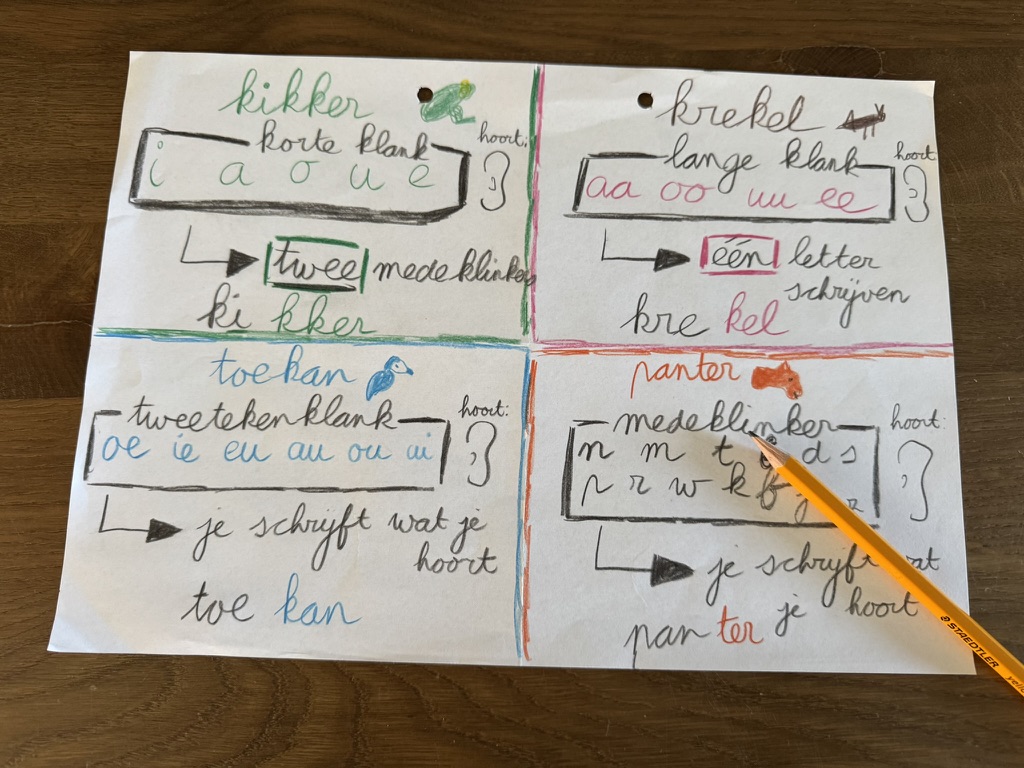 kikker
korte klank
hoort:
i a o u e
twee medeklinkers
ki kker
krekel
lange klank
hoort
aa oo uu ee
één letter
schrijven
kre kel
toekan
tweetekenklank
hoort:
oe ie eu au ou ui
je schrijft wat je
hoort
toe kan
panter
medeklinker
hoort:
n m t d s
p r w k
je schrijft wat
je hoort
pan ter
STAEDTLER